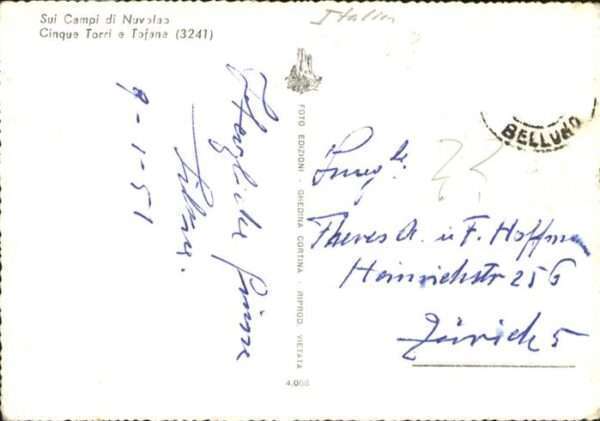 Sui Campi di Nuvolao
Cinque Torri e Tofane (3241)
Italien
9-1-51
Herzliche Grüsse
FOTO EDIZIONI - GHEDINA CORTINA - RIPROD. VIETATA
4.000
BELLUNO
Theres A. u F. Hoffmann
Heinrichstr 256
Zürich 5